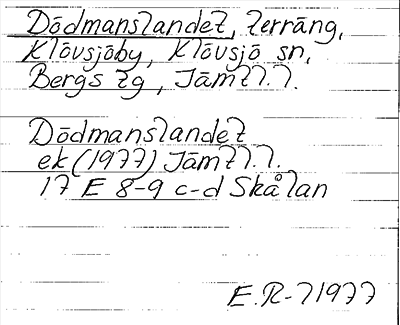 Dödmanslandet, terräng,
Klövsjöby, Klövsjö sn,
Bergs tg, Jämtl.l.
Dödmanslandet
ek (1977) Jämtl.l.
17 E 8-9 c-d Skålan
E.R-71977